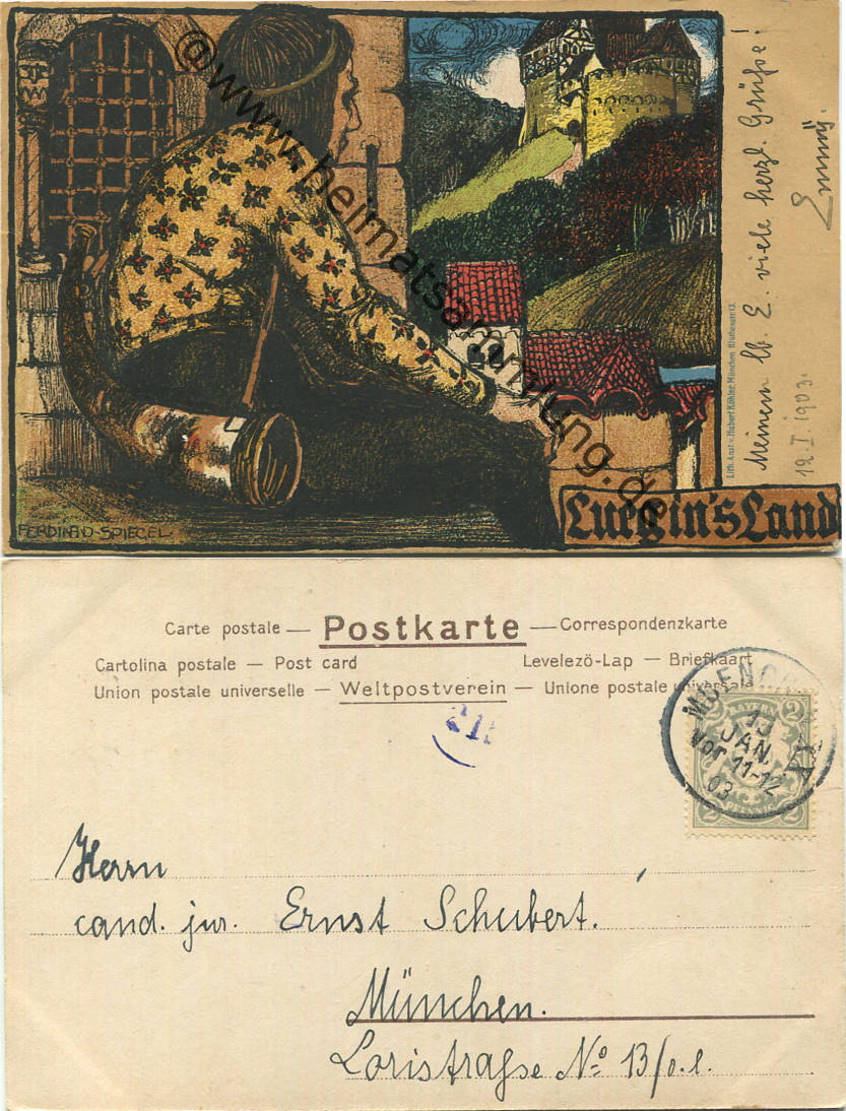 @www.heimatsammlung.de
Meinem lb. E. viele herzl. Grüße!
Emmy.
12. I 1903.
FERDINAND-SPIEGEL
Lueg in's Land
Carte postale — Postkarte — Correspondenzkarte
Cartolina postale — Post card Levelezö-Lap — Briefkaart
Union postale universelle — Weltpostverein — Unione postale universale
13
JAN.
Vor 11-12
03
BAYERN
2 2
2 PFENNIG 2
Herrn
cand. jur. Ernst Schubert.
München.
Loristraße No 13/o.l.